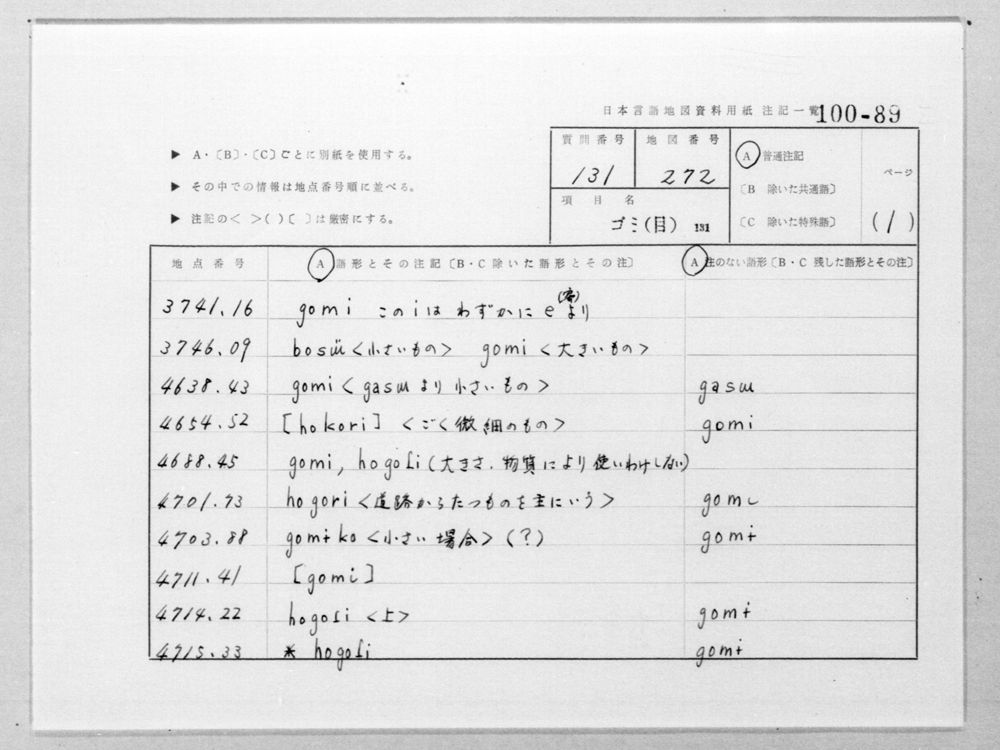 日本言語地図資料用紙 注記一覧 100-89
▶ A・〔B〕・〔C〕ごとに別紙を使用する。
▶ その中での情報は地点番号順に並べる。
▶ 注記の< >( )〔 〕は厳密にする。
質問番号 地図番号
131 272
項目名
ゴミ(目) 131
A 普通注記
〔B 除いた共通語〕
〔C 除いた特殊語〕
ページ
(1)
地点番号 A 語形とその注記〔B・C 除いた語形とその注〕 A 注のない語形〔B・C 残した語形とその注〕
3741.16 gomi このiはわずかにeより
3746.09 bosɯ̈<小さいもの> gomi<大きいもの>
4638.43 gomi<gasɯより小さいもの> gasɯ
4654.52 [hokori] <ごく微細のもの> gomi
4688.45 gomi, hogoɾi(大きさ、物質により使いわけしない)
4701.73 hogori<道路からたつものを主にいう> gomi
4703.88 gomɨko<小さい場合>(?) gomɨ
4711.41 [gomi]
4714.22 hogoɾi <上> gomɨ
4715.33 * hogoɾi gomɨ